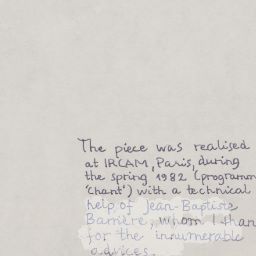 The piece was realised
at IRCAM, Paris, during
the spring 1982 (programm
'Chant') with a technical
help of Jean-Baptiste
Barrière, whom I than
for the innumerable
advices.